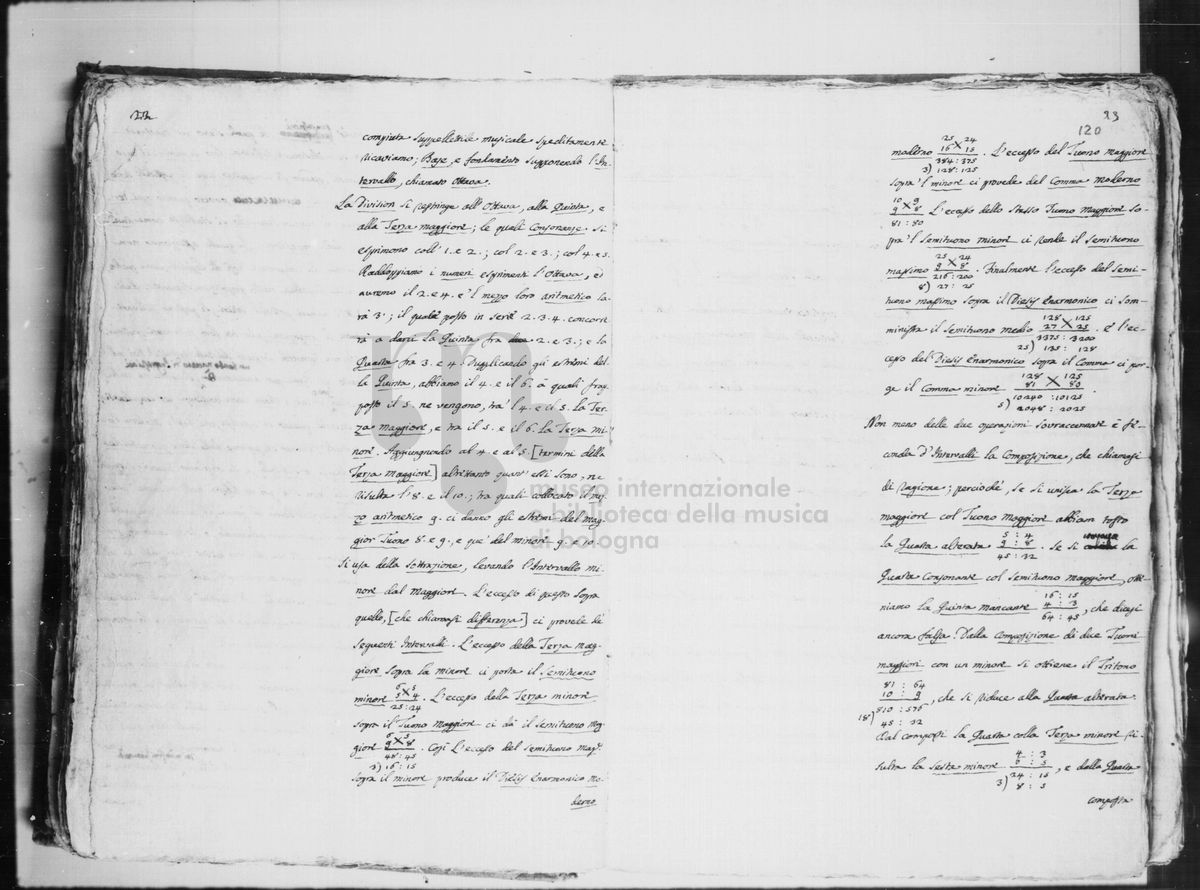 22
compiuta suppellettile musicale speditamente
ricaviamo; Base, e fondamento supponendo l'In-
tervallo, chiamato Ottava.
La Division si restringe all'Ottava, alla Quinta, e
alla Terza maggiore; le quali Consonanze si
esprimono coll' 1. e 2.; col 2. e 3.; col 4. e 5.
Raddoppiamo i numeri esprimenti l'Ottava, ed
avremo il 2. e 4. e 'l mezzo loro aritmetico sa-
rà 3.; il quale posto in serie 2. 3. 4. concorre
rà a darci la Quinta fra 2. e 3.; e la
Quarta fra 3. e 4. Duplicando gli estremi del-
la Quinta, abbiamo il 4. e il 6. a quali frap-
posto il 5. ne vengono, tra 'l 4. e il 5. la Ter-
za maggiore, e tra il 5. e il 6. la Terza mi-
nore. Aggiungnendo al 4. e al 5. [termini della
Terza maggiore] altrettanto quant' essi sono, ne
risulta l' 8. e il 10.; tra quali collocato il mez-
zo aritmetico 9. ci danno gli estremi del mag-
gior Tuono 8. e 9., e que' del minore 9. e 10.
Si usa della Sottrazione, levando l'Intervallo mi-
nore dal maggiore. L'eccesso di questo sopra
quello, [che chiamasi differenza] ci provede de'
seguenti Intervalli. L'eccesso della Terza mag-
giore sopra la minore ci porta il semituono
6 5
minore 5 X 4 . L'eccesso della Terza minore
25 : 24
sopra il Tuono maggiore ci dà il semituono mag-
6 5
giore 9 X 8 . Così L'eccesso del semituono magre
48 : 45
3) 16 : 15
sopra il minore produce il Diesis Enarmonico mo-
derno
23
120
25 24
moderno 16 X 15 . L'eccesso del Tuono maggiore
384 : 375
3) 128 : 125
sopra 'l minore ci provede del Comma moderno
10 9
9 X 8 L'eccesso dello stesso Tuono maggiore so-
81 : 80
pra 'l semituono minore ci rende il semituono
25 24
massimo 9 X 8 . Finalmente l'eccesso del semi-
216 : 200
8) 27 : 25
tuono massimo sopra il Diesis Enarmonico ci som-
128 125
ministra il semituono medio 27 X 25 . E l'ec-
3375 : 3200
25) 135 : 128
cesso del Diesis Enarmonico sopra il Comma ci por-
128 125
ge il Comma minore 81 X 80 .
10240 : 10125
5) 2048 : 2025
Non meno delle due operazioni sovraccennate è fe-
conda d'Intervalli la Composizione, che chiamasi
di ragione; perciocchè, se si unisca la Terza
maggiore col Tuono maggiore abbiam tosto
5 : 4
la Quarta alterata 9 : 8 . Se si unisca la
45 : 32
Quarta consonante col semituono maggiore, otte-
16 : 15
niamo la Quinta mancante 4 : 3 , che dicesi
64 : 45
ancora falsa. Dalla Composizione di due Tuoni
maggiori con un minore si ottiene il Tritono
81 : 64
10 : 9 , che si riduce alla Quarta alterata.
18) 810 : 576
45 : 32
Dal composti la Quarta colla Terza minore ri-
4 : 3
sulta la Sesta minore 6 : 5 , e dalla Quarta
24 : 15
3) 8 : 5
composta
museo internazionale
e biblioteca della musica
di bologna